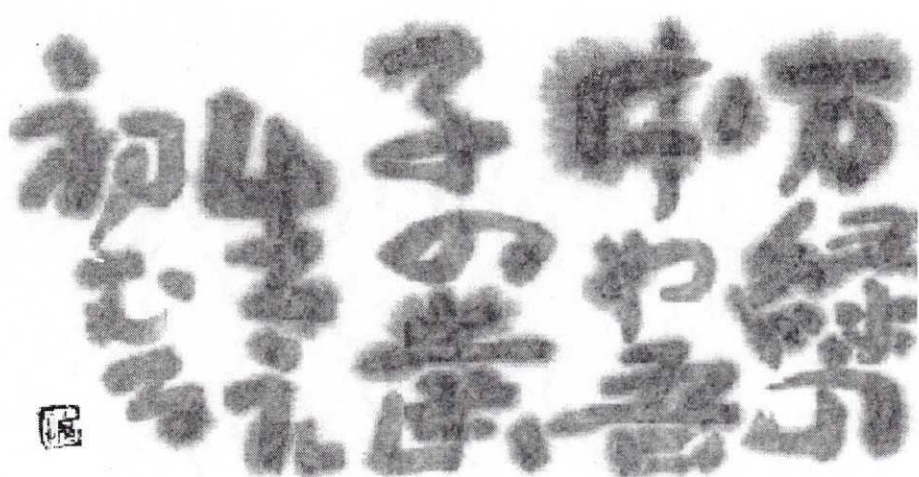 万緑の
中や吾
子の歯
生え
初むる